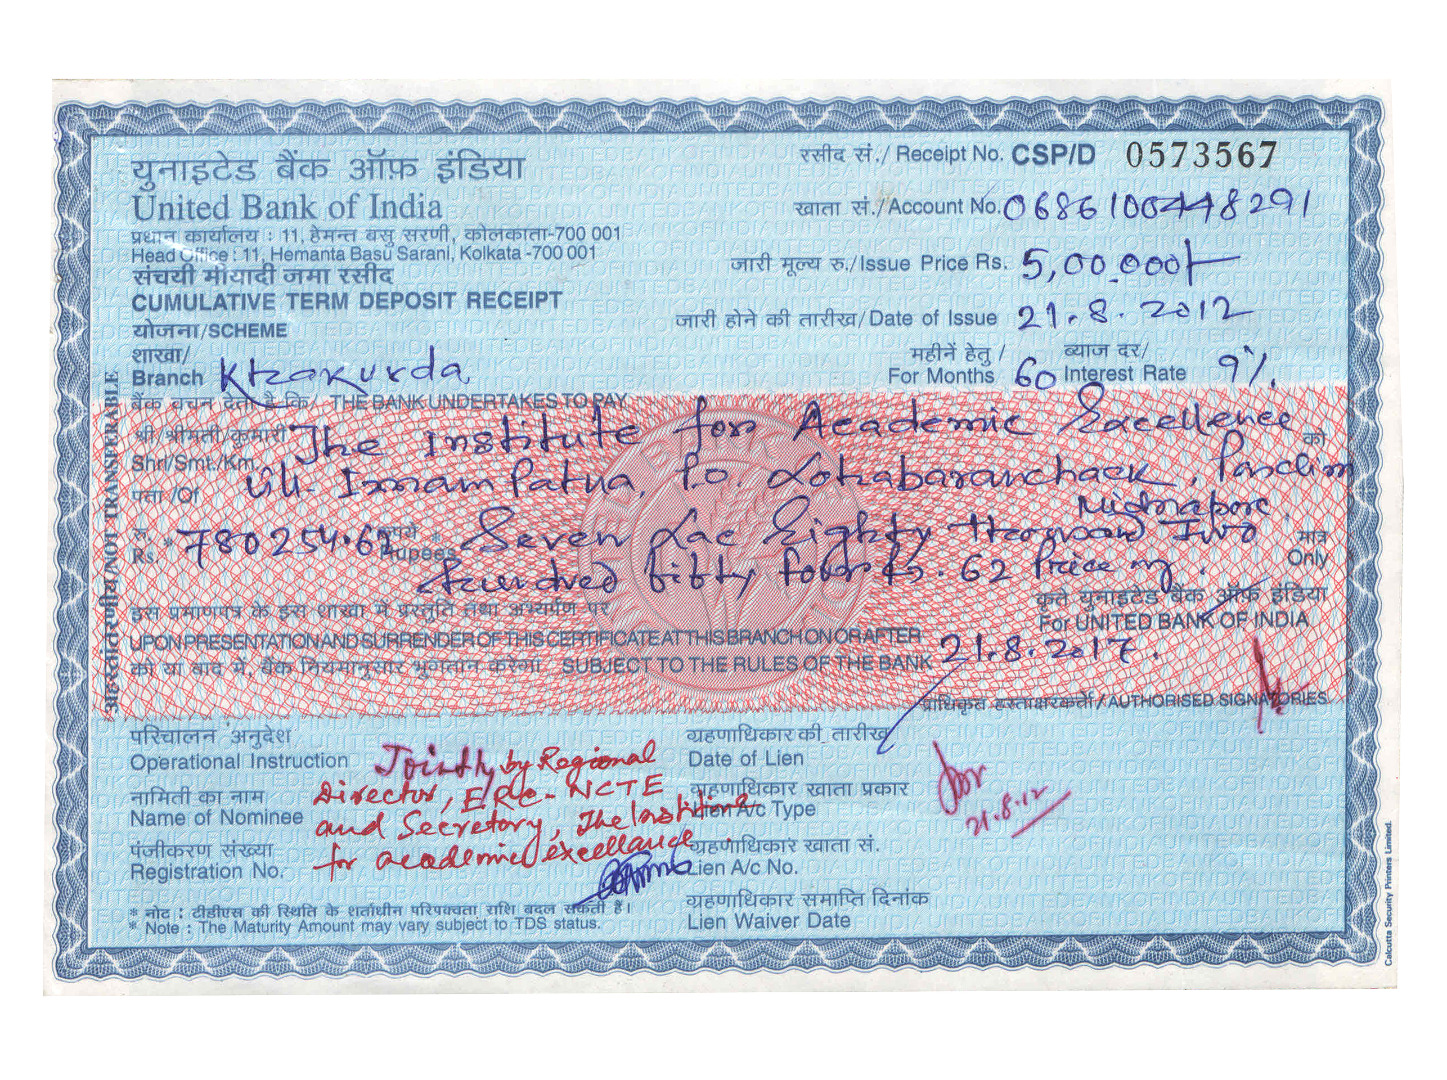 युनाइटेड बैंक ऑफ़ इंडिया
United Bank of India
प्रधान कार्यालय : 11, हेमन्त बसु सरणी, कोलकाता-700 001
Head Office : 11, Hemanta Basu Sarani, Kolkata -700 001
संचयी मीयादी जमा रसीद
CUMULATIVE TERM DEPOSIT RECEIPT
योजना/SCHEME
रसीद सं./ Receipt No. CSP/D 0573567
खाता सं./Account No. 0686100448291
जारी मूल्य रु./Issue Price Rs. 5,00,000/-
जारी होने की तारीख/Date of Issue 21.8.2012
शाखा/
Branch Khakurda
महीनें हेतु / ब्याज दर/
For Months 60 Interest Rate 9%
बैंक वचन देता है कि THE BANK UNDERTAKES TO PAY
श्री/श्रीमती/कुमारी The Institute for Academic Excellence को
Shri/Smt./Km.
पता /Of Vill. Imam Patna, P.O. Lohabaranchack, Paschim
Midnapore.
रु. रुपये मात्र
Rs. * 780254.62 Rupees * Seven Lac Eighty Thousand Two Only
hundred fifty four Rs. 62 Paise only.
इस प्रमाणपत्र के इस शाखा में प्रस्तुति तथा अभ्यर्पण पर
कृते युनाइटेड बैंक ऑफ़ इंडिया
For UNITED BANK OF INDIA
UPON PRESENTATION AND SURRENDER OF THIS CERTIFICATE AT THIS BRANCH ON OR AFTER 21.8.2017.
को या बाद में, बैंक नियमानुसार भुगतान करेगा SUBJECT TO THE RULES OF THE BANK
प्राधिकृत हस्ताक्षरकर्ता / AUTHORISED SIGNATORIES
अहस्तांतरणीय/NOT TRANSFERABLE
परिचालन अनुदेश
Operational Instruction Jointly by Regional
Director, ERC-NCTE
नामिती का नाम
Name of Nominee and Secretory, The Institute
पंजीकरण संख्या for academic excellance
Registration No.
ग्रहणाधिकार की तारीख
Date of Lien
ग्रहणाधिकार खाता प्रकार
Lien A/c Type
21.8.12
ग्रहणाधिकार खाता सं.
Lien A/c No.
ग्रहणाधिकार समाप्ति दिनांक
Lien Waiver Date
* नोट : टीडीएस की स्थिति के शर्ताधीन परिपक्वता राशि बदल सकती है।
* Note : The Maturity Amount may vary subject to TDS status.
Calcutta Security Printers Limited.